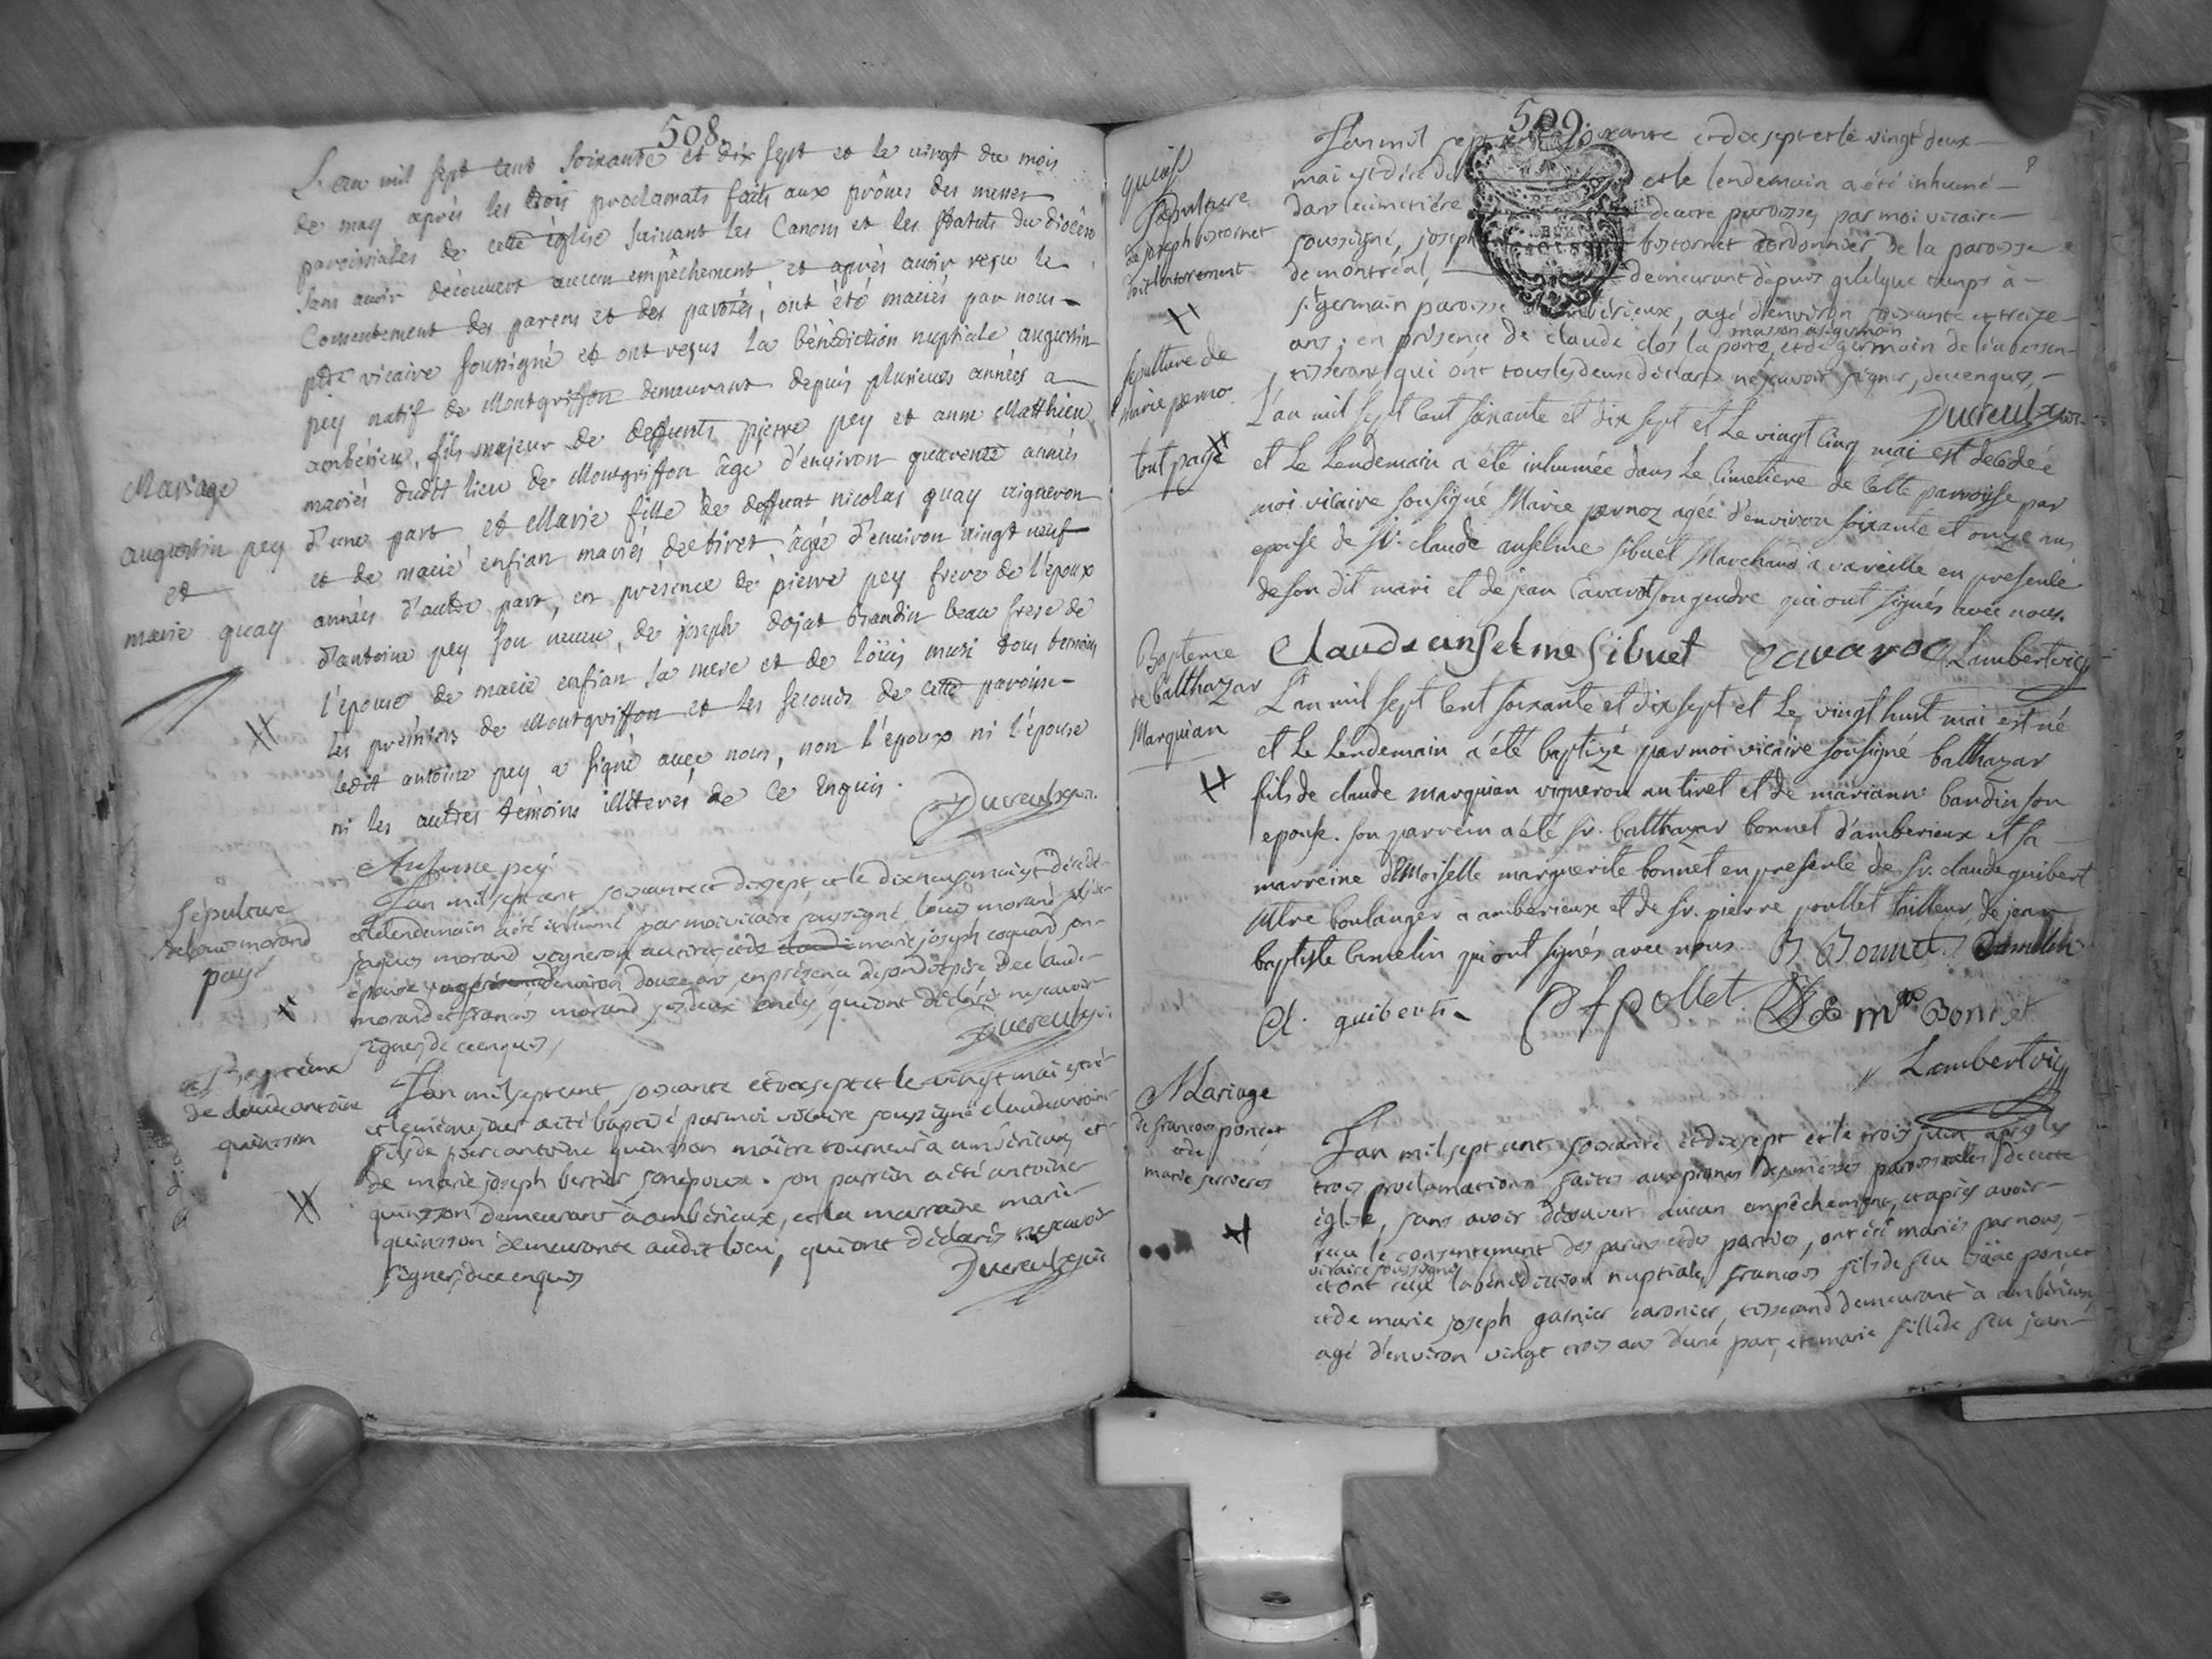 508
L'an mil sept cent soixante et dix sept et le vingt du mois
de may après les trois proclamats faits aux prônes des messes
paroissiales de cette église suivant les Canons et les statuts du diocèse
sans avoir découvert aucun empêchement et après avoir reçu le
Consentement des parens et des parties, ont été mariés par nous
ptre vicaire soussigné et ont reçus la bénédiction nuptiale augustin
pey natif de Montgriffon demeurant depuis plusieurs années a
ambérieu, fils majeur de deffunts pierre pey et anne Matthieu
mariés dudit lieu de Montgriffon âgé d'environ quarente années
d'une part et Marie fille de deffunt nicolas quay vigneron
et de marie enfian mariés de tiret, âgée d'environ vingt neuf
années d'autre part, en présence de pierre pey frere de l'époux
d'antoine pey son neveu, de joseph dojat brandin beau frere de
l'épouse de marie enfian sa mere et de loüis musi tous temoins
les prémiers de Montgriffon et les seconds de cette paroisse
ledit antoine pey a signé avec nous, non l'époux ni l'épouse
ni les autres témoins illiterés de ce Enquis.
Mariage
augustin pey
et
marie quay
Ducreulx vic.
Antoine pey
Sépulture
de louis morand
payé
L'an mil sept cent soixante et dix sept et le dix neuf mai est décédé
et le lendemain a été inhumé par moi vicaire soussigné louis morand fils de
jaques morand vigneron au tiret et de marie joseph coquard son
épouse, agé d'environ douze ans, en présence de son dit père de claude
morand et francois morand ses deux oncles, qui ont déclaré ne scavoir
signer, de ce enquis,
Ducreulx vic
Bapteme
de claude antoine
quinsson
L'an mil sept cent soixante et dix sept et le vingt mai est né
et le même jour a été baptisé par moi vicaire soussigné claude antoine
fils de pierre antoine quinsson maître tourneur a ambérieux et
de marie joseph bertier son epouse. son parrain a été antoine
quinsson demeurant à ambérieux, et la marraine marie
quinsson demeurante audit lieu, qui ont déclarés ne scavoir
signer, de ce enquis
Ducreulx vic
509
L'an mil sept cent soixante et dix sept et le vingt deux
mai est décédé et le lendemain a été inhumé
dans le cimetière de cette paroisse, par moi vicaire
soussigné, joseph bistornet cordonnier de la paroisse
de montréal, demeurant depuis quelque temps à
st germain paroisse d'ambérieux, agé d'environ soixante et treize
ans; en présence de claude clos la porte masson a st germain et de germain de
tisserant, qui ont tous les deux déclarés ne scavoir signer, de ce enquis,
Ducreulx vic
Sépulture
de joseph bistornet
doit l'enterrement
sépulture de
marie perno
tout payé
L'an mil sept cent soixante et dix sept et Le vingt cinq mai est decédée
et Le Lendemain a été inhumée dans Le Cimetière de Cette parroisse par
moi vicaire sousigné Marie pernoz agée d'environ soixante et onze ans
epouse de Sr. claude anselme sibuet Marchand a vareille en presence
de son dit mari et de jean Cavarot son gendre qui ont signés avec nous.
Claude anselme Sibuet Cavaroc Lambert vic
Bapteme
de balthazar
Marquian
L'an mil sept Cent soixante et dix sept et Le vingt huit mai est né
et Le Lendemain a été baptizé par moi vicaire sousigné balthazar
fils de claude marquian vigneron au tiret et de mariann baudin son
epouse. Son parrein a été Sr. balthazar bonnet d'amberieux et sa
marreine dmoiselle marguerite bonnet en presence de Sr. claude guibert
mtre boulanger a amberieux et de Sr. pierre poullet tailleur de jean
baptiste Camelin qui ont signés avec nous. B Bonnet. Camelin
Cl. guibert. pollet mte Bonnet
Lambert vic
Mariage
de francois poncet
et de
marie ferrieres
L'an mil sept cent soixante et dix sept et le trois juin après les
trois proclamations faites aux prones des messes paroissiales de cette
église, sans avoir découvert aucun empêchement, et après avoir
reçu le consentement des parens et des parties, ont été mariés par nous
vicaire soussigné
et ont reçu la bénédiction nuptiale francois fils de feu isâac poncet
et de marie joseph garnier caronier, tisserand demeurant à ambérieux,
agé d'environ vingt trois ans d'une part, et marie fille de feu jean